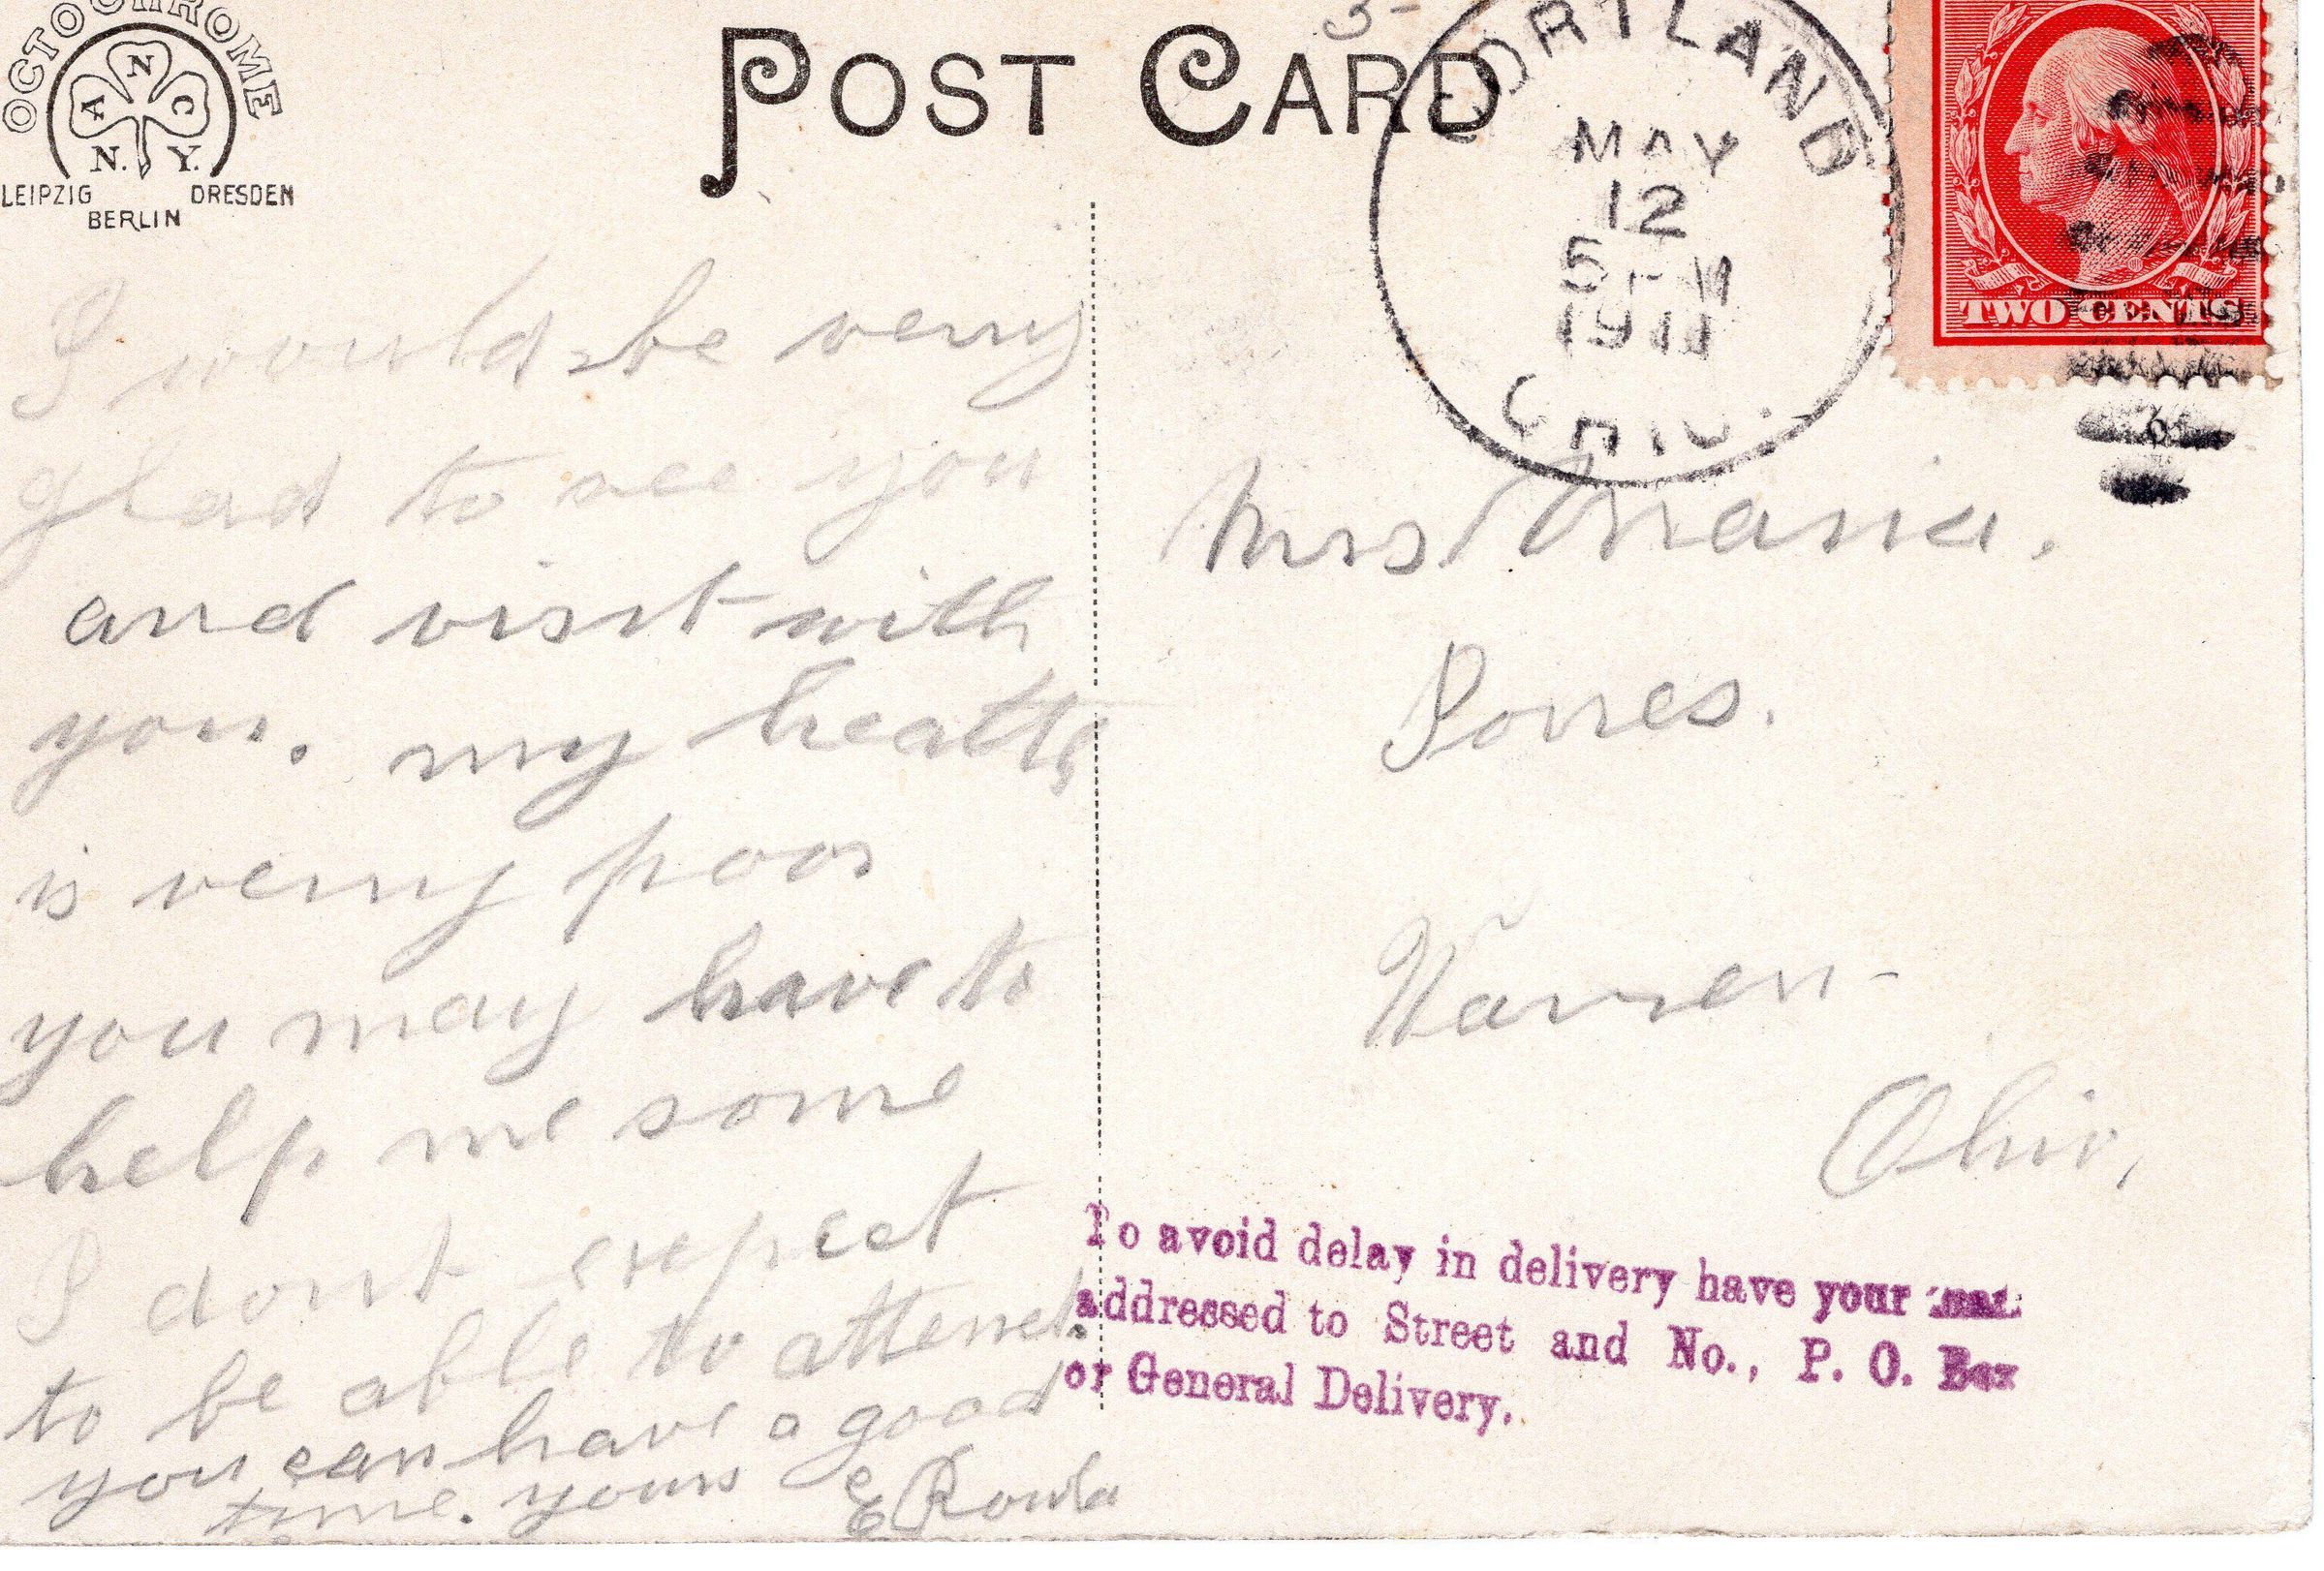 OCTOCHROME
A N C
N. Y.
LEIPZIG DRESDEN
BERLIN
POST CARD
CORTLAND
MAY
12
5 PM
1911
OHIO.
TWO CENTS
6
I would be verry
glad to see you
and visit with
you. my health
is verry poor
you may have to
help me some
I dont expect
to be able to attend.
you can have a good
time. yours E
Mrs Maria.
Jones.
Warren
Ohio,
To avoid delay in delivery have your
addressed to Street and No., P. O. Box
or General Delivery.